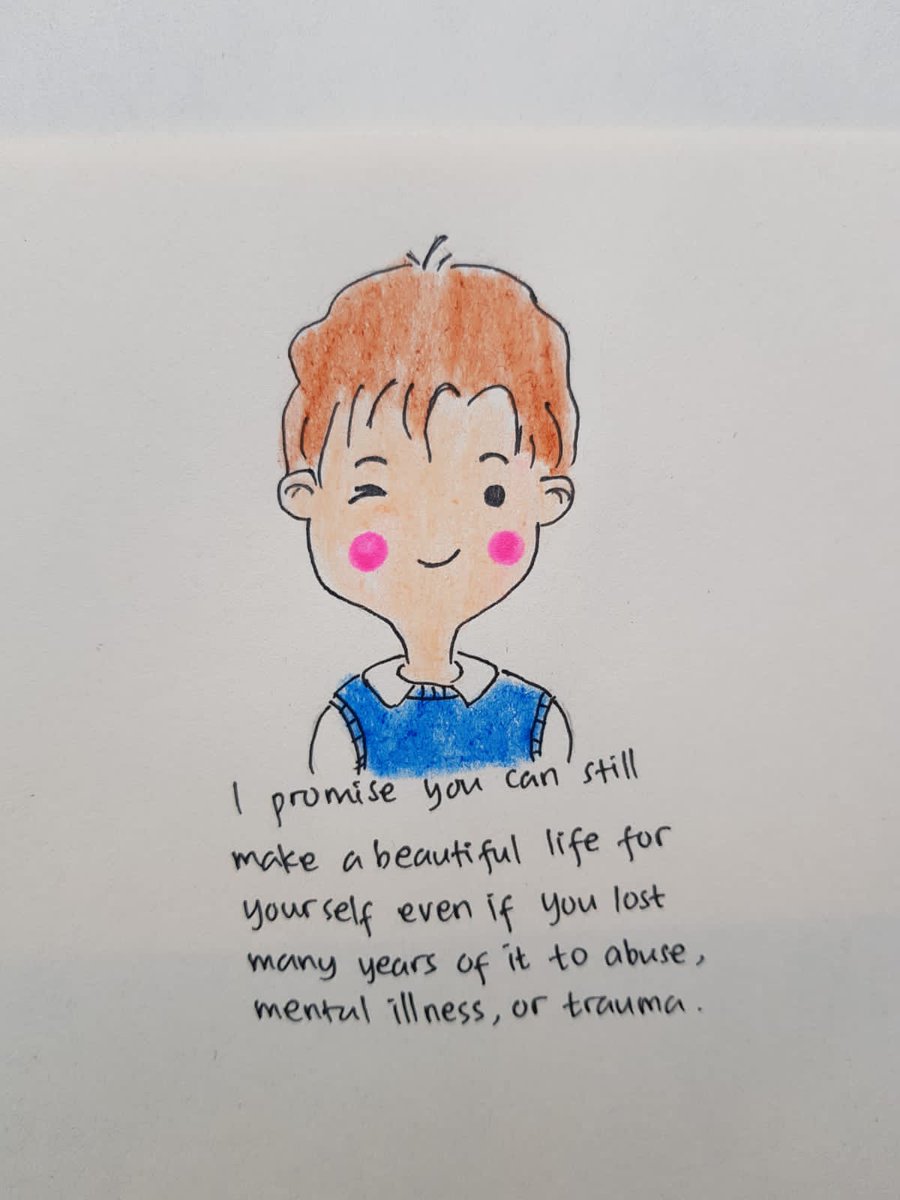 I promise you can still
make a beautiful life for
yourself even if you lost
many years of it to abuse,
mental illness, or trauma.